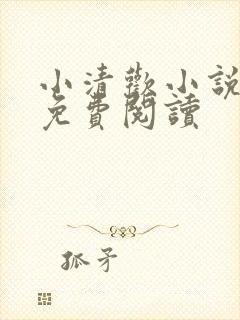 小清歡小說
免費閱讀
孤矛